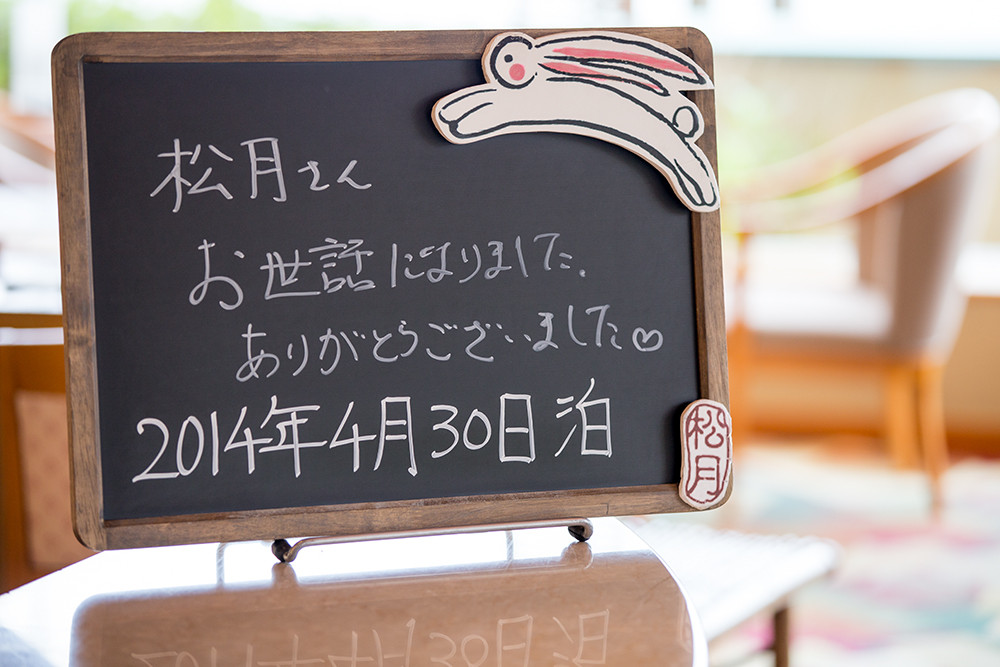 松月さん
お世話になりました。
ありがとうございました♡
2014年4月30日 泊
松月